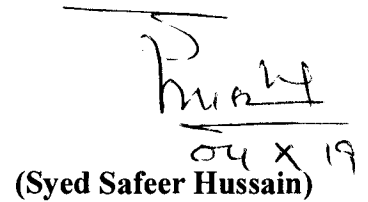 04 X 19
(Syed Safeer Hussain)